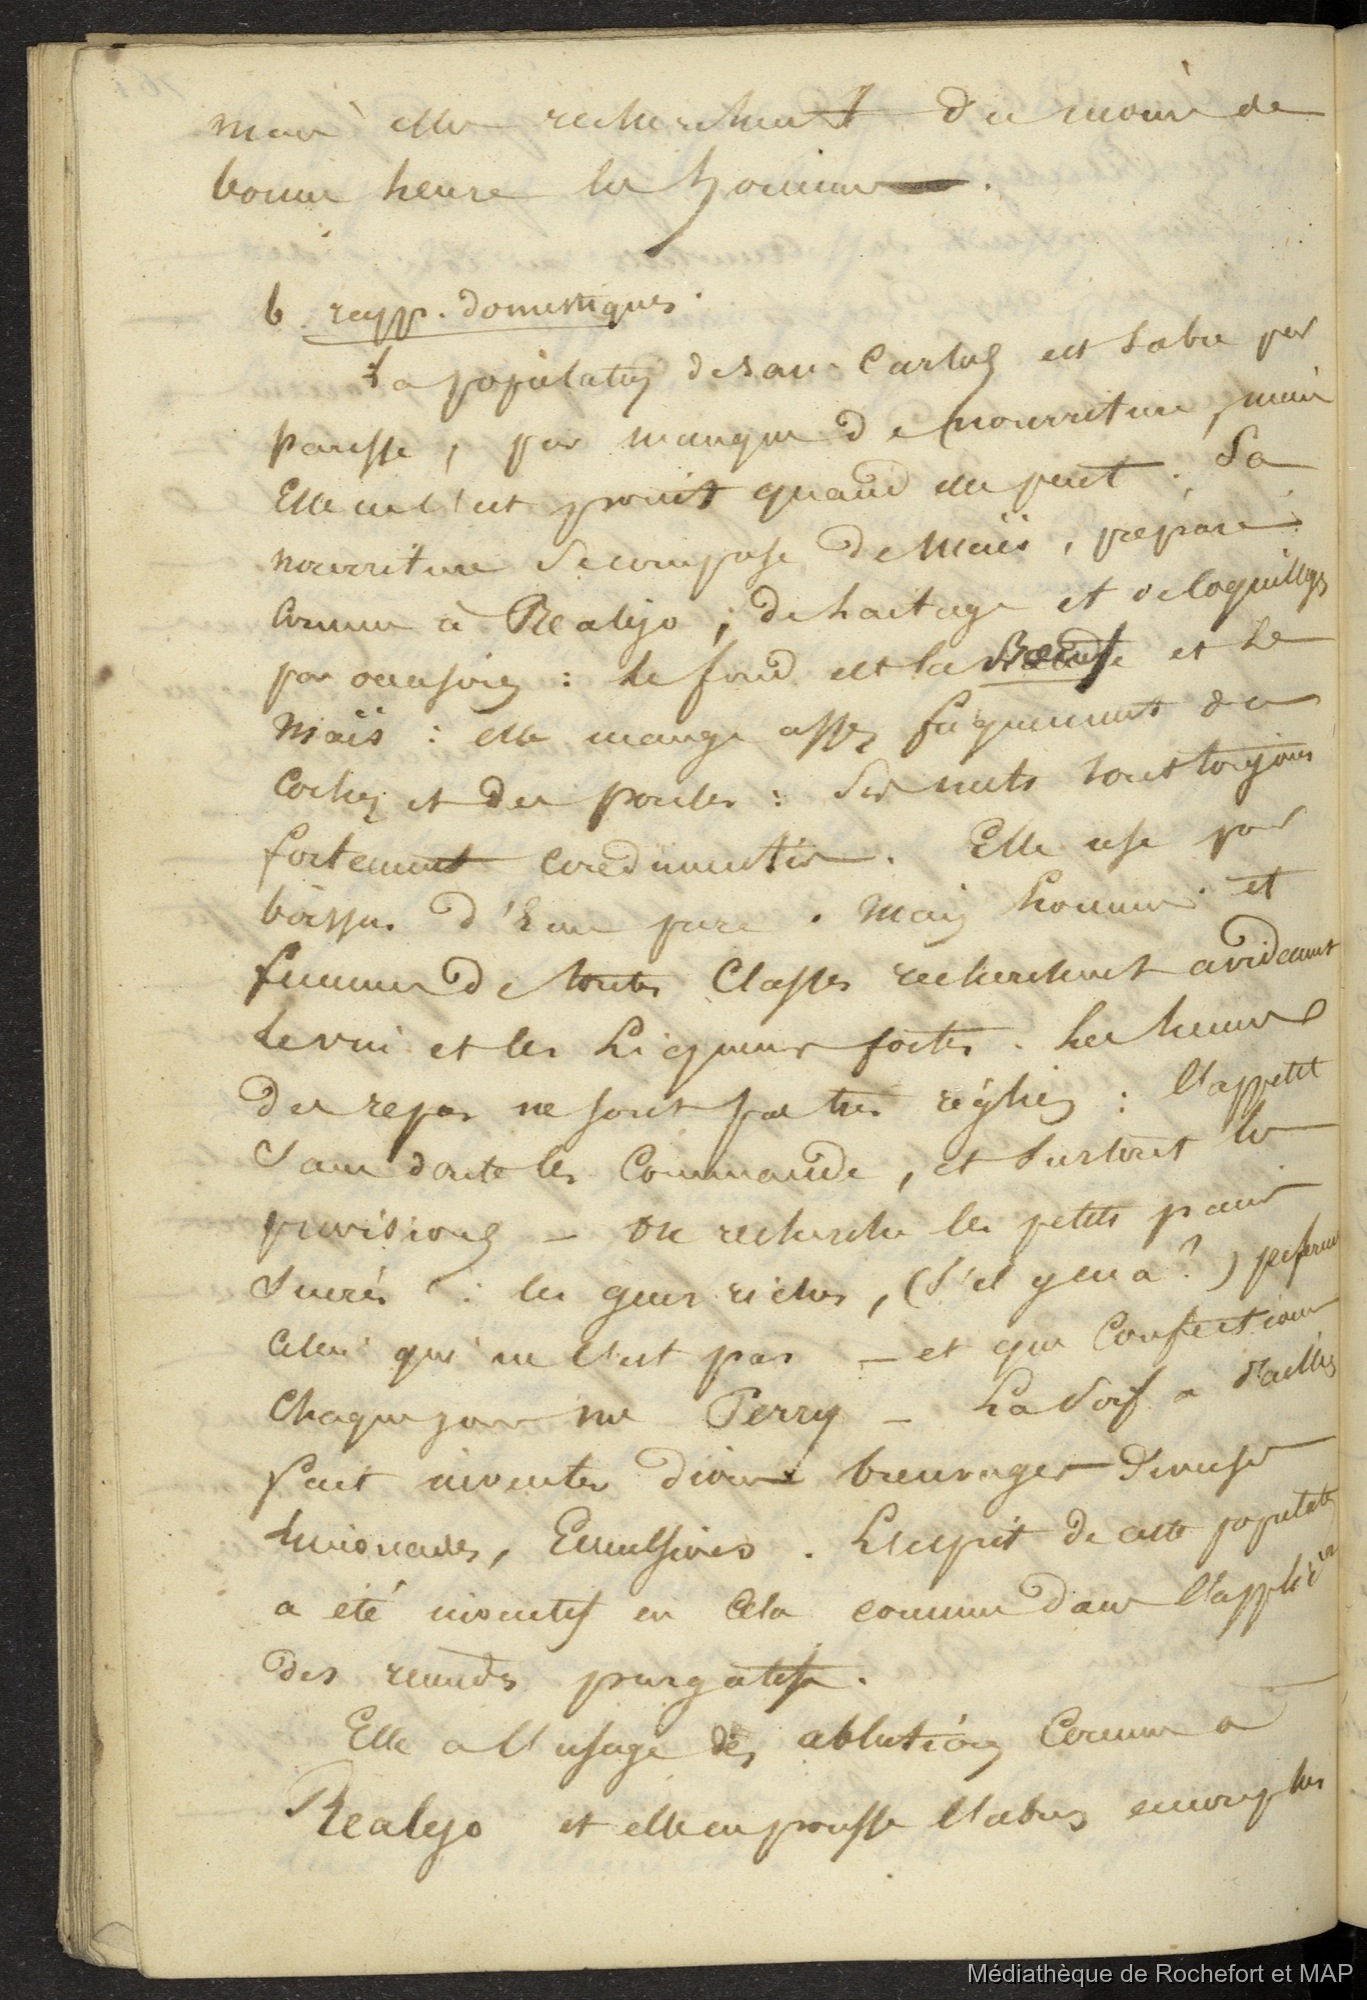 mais elles recherchent du moins de
bonne heure les hommes.
b. rapp. domestiques.
La population de san-Carlos est sobre par
paresse, par manque de nourriture, mais
Elle ne l'est point quand elle peut. Sa
nourriture se compose de Maïs, préparé
comme à Realejo; de laitage et de coquillages
par occasion : le fond est le Boeuf et le
maïs : elle mange assez fréquemment du
Cochon et des poules : Ses mets sont toujours
fortement condimentés. Elle use pour
boisson d'Eau pure. Mais hommes et
femmes de toutes Classes recherchent avidement
le vin et les Liqueurs fortes. Les heures
des repas ne sont pas très réglées : l'appétit
Sans doute les Commande, et surtout les
provisions — On recherche les petits pains
Sucrés : les gens riches, (S'il y en a ?) préfèrent
Celui qui ne l'est pas — et que Confectionne
Chaque jour Mr Perry — La Soif a d'ailleurs
fait inventer divers breuvages diverses
Limonades, Emulsions. L'esprit de cette populat
a été inventif en Cela comme dans l'applic
des remèdes purgatifs.
Elle a l'usage des ablutions Comme à
Realejo et elle en pousse l'abus encore plus
Médiathèque de Rochefort et MAP